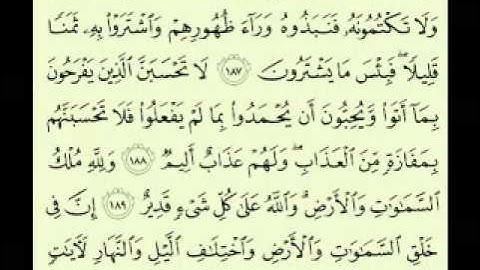 وَلَا تَكْتُمُونَهُۥ فَنَبَذُوهُ وَرَآءَ ظُهُورِهِمْ وَٱشْتَرَوْا۟ بِهِۦ ثَمَنًا
قَلِيلًا ۖ فَبِئْسَ مَا يَشْتَرُونَ ١٨٧ لَا تَحْسَبَنَّ ٱلَّذِينَ يَفْرَحُونَ
بِمَآ أَتَوا۟ وَّيُحِبُّونَ أَن يُحْمَدُوا۟ بِمَا لَمْ يَفْعَلُوا۟ فَلَا تَحْسَبَنَّهُم
بِمَفَازَةٍ مِّنَ ٱلْعَذَابِ ۖ وَلَهُمْ عَذَابٌ أَلِيمٌ ١٨٨ وَلِلَّهِ مُلْكُ
ٱلسَّمَٰوَٰتِ وَٱلْأَرْضِ ۗ وَٱللَّهُ عَلَىٰ كُلِّ شَىْءٍ قَدِيرٌ ١٨٩ إِنَّ فِى
خَلْقِ ٱلسَّمَٰوَٰتِ وَٱلْأَرْضِ وَٱخْتِلَٰفِ ٱلَّيْلِ وَٱلنَّهَارِ لَءَايَٰتٍ